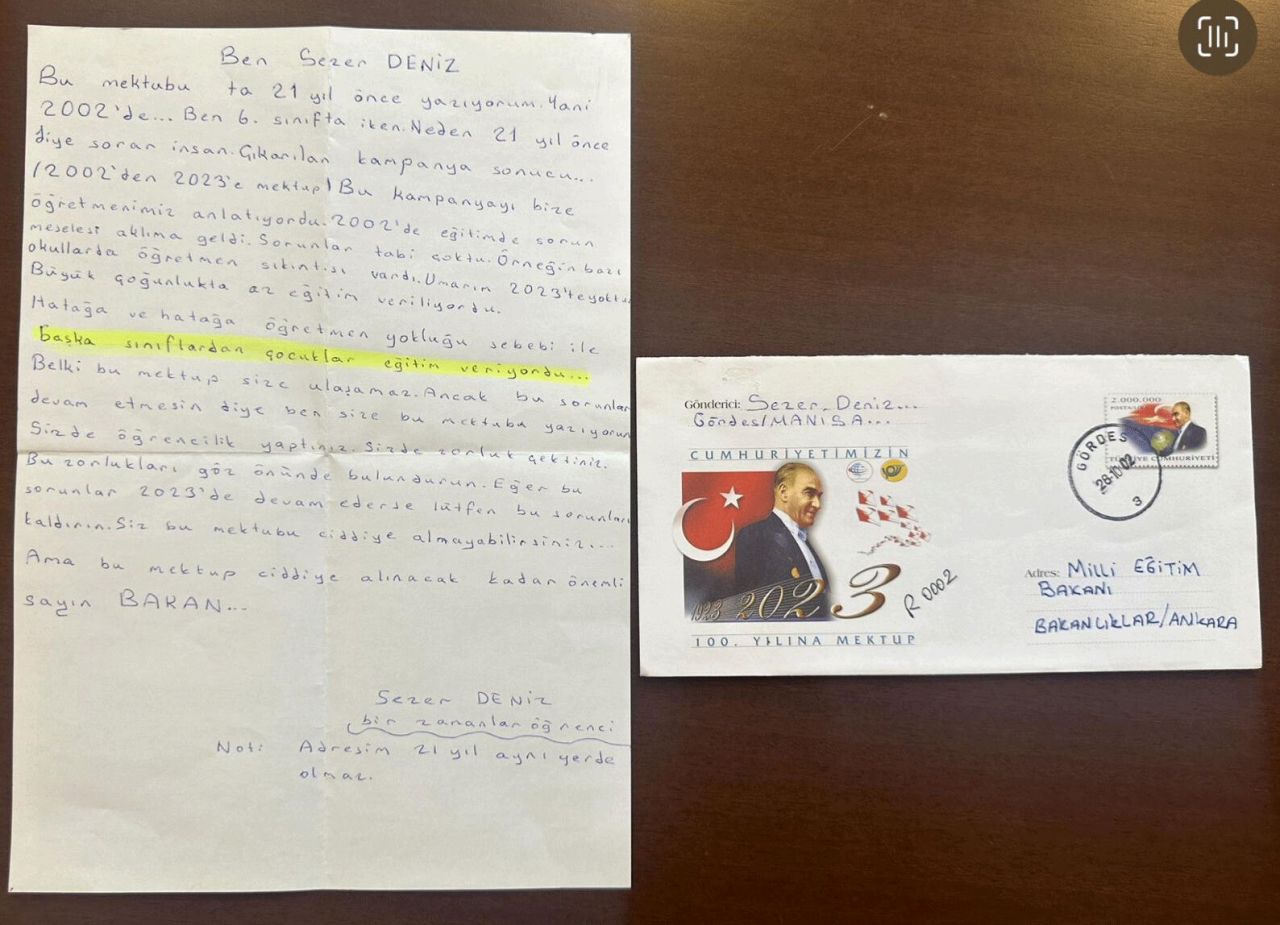 Ben Sezer DENİZ
Bu mektubu ta 21 yıl önce yazıyorum. Yani
2002'de... Ben 6. sınıfta iken. Neden 21 yıl önce
diye sorar insan. Çıkarılan kampanya sonucu...
(2002'den 2023'e mektup) Bu kampanyayı bize
öğretmenimiz anlatıyordu. 2002'de eğitimde sorun
meselesi aklıma geldi. Sorunlar tabi çoktu. Örneğin bazı
okullarda öğretmen sıkıntısı vardı. Umarım 2023'te yoktur
Büyük çoğunlukta az eğitim veriliyordu.
Hatağa ve hatağa öğretmen yokluğu sebebi ile
başka sınıflardan çocuklar eğitim veriyordu...
Belki bu mektup size ulaşamaz. Ancak bu sorunlar
devam etmesin diye ben size bu mektubu yazıyorum
Sizde öğrencilik yaptınız. Sizde zorluk çektiniz.
Bu zorlukları göz önünde bulundurun. Eğer bu
sorunlar 2023'de devam ederse lütfen bu sorunları
kaldırın. Siz bu mektubu ciddiye almayabilirsiniz...
Ama bu mektup ciddiye alınacak kadar önemli
sayın BAKAN...
Sezer DENİZ
bir zamanlar öğrenci
Not: Adresim 21 yıl aynı yerde
olmaz.
Gönderici: Sezer Deniz...
Gördes/MANİSA...
CUMHURİYETİMİZİN
1923 2023
100. YILINA MEKTUP
R 0002
2.000.000
TÜRKİYE CUMHURİYETİ
GÖRDES
28-10-02
3
Adres: MİLLİ EĞİTİM
BAKANI
BAKANLIKLAR/ANKARA